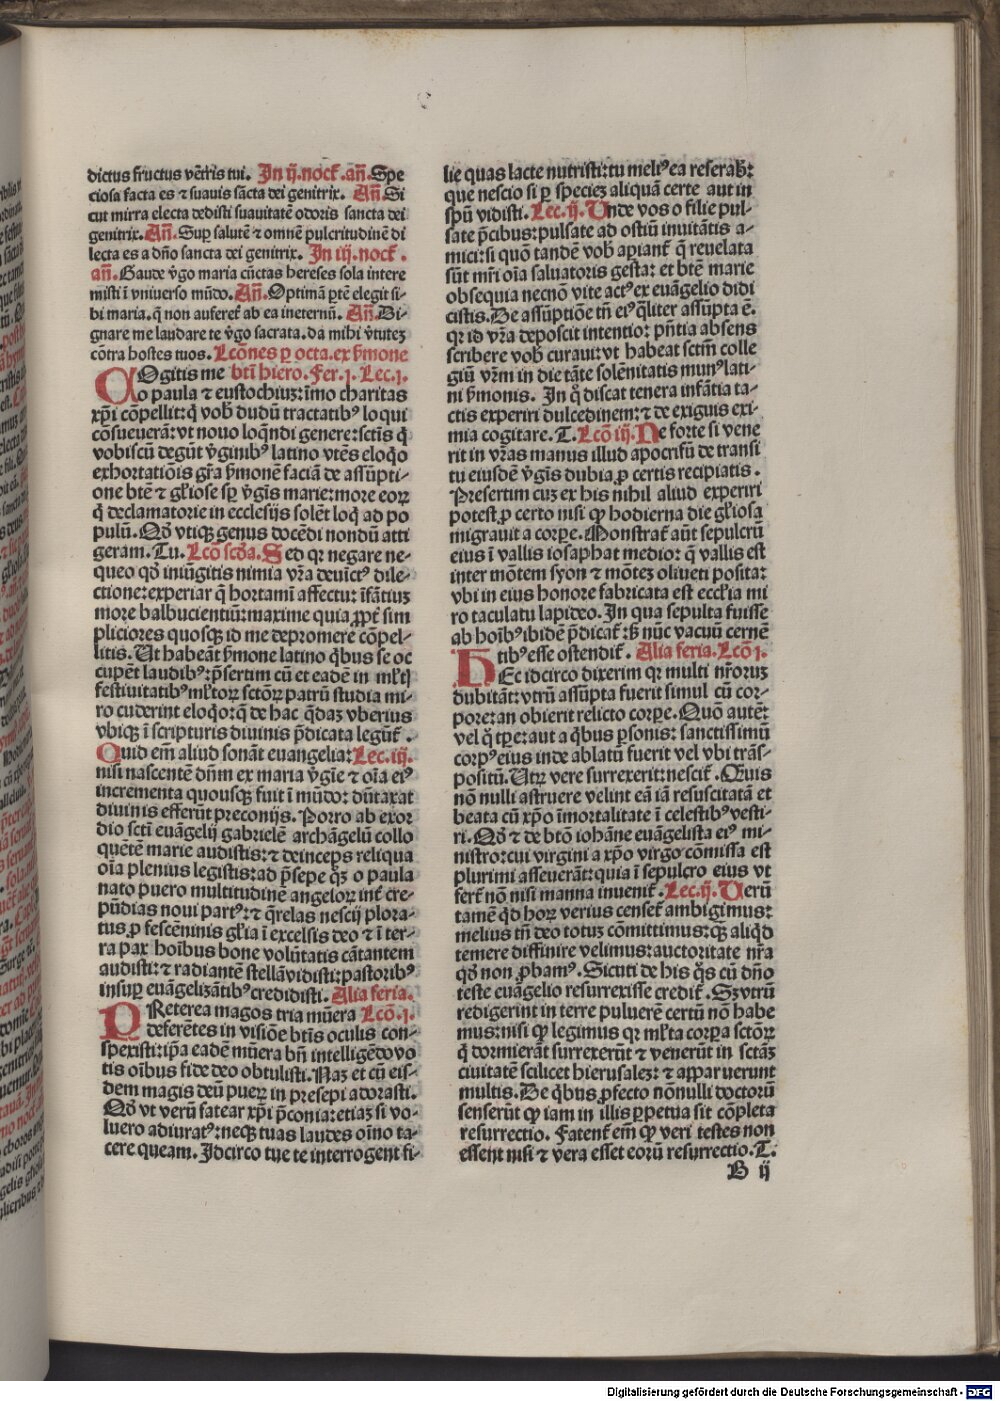 dictus fructus vẽtris tui. In ij. noct̃. añ. Spe
ciosa facta es ⁊ suauis sãcta dei genitrix. Añ. Si
cut mirra electa dedisti suauitatẽ odoris sancta dei
genitrix. Añ. Suꝑ salutẽ ⁊ omnẽ pulcritudinẽ di
lecta es a dño sancta dei genitrix. In iij. noct̃.
añ. Gaude v̓go maria cũctas hereses sola intere
misti ĩ vniuerso mũdo. Añ. Optimã ꝑtẽ elegit si-
bi maria. q̃ non auferet̃ ab ea ineternũ. Añ. Di-
gnare me laudare te v̓go sacrata. da mihi v̓tuteꝫ
cõtra hostes tuos. Lcõnes ꝑ octa. ex s̓mone
COgitis me bt̃i hiero. Fer. j. Lec. j.
o paula ⁊ eustochiuꝫ: ĩmo charitas
xp̃i cõpellit: q̃ vob̃ dudũ tractatibꝰ loqui
cõsueuerã: vt nouo loq̃ndi genere: sct̃is q̃
vobiscũ degũt v̓ginibꝰ latino vtẽs eloq̃o
exhortatiõis gr̃a s̓monẽ faciã de assũpti-
one bt̃e ⁊ gl̃iose sꝑ v̓gĩs marie: more eoꝝ
q̃ declamatorie in ecclesijs solẽt loq̃ ad po
pulũ. Qð vtiqꝫ genus docẽdi nondũ atti
geram. Tu. Lcõ scð̃a. Sed qꝛ negare ne-
queo qð iniũgitis nimia vr̃a deuĩctꝰ dile-
ctione: experiar q̃ hortamĩ affectu: ĩfãtiuꝫ
more balbucientiũ: maxime quia ꝓpt̃ sim
pliciores quosqꝫ id me depromere cõpel-
litis. Ut habeãt s̓mone latino q̃bus se oc
cupẽt laudibꝰ: p̃sertim cũ et eadẽ in ml̃tꝭ
festiuitatibꝰ ml̃toꝝ sctõꝝ patrũ studia mi-
ro cuderint eloq̃o: q̃ de hac q̃daꝫ vberius
vbiqꝫ ĩ scripturis diuinis p̃dicata legũt̃.
Quid em̃ aliud sonãt euangelia: Lec. iij.
nisi nascentẽ dñm ex maria v̓gĩe ⁊ oĩa eiꝰ
incrementa quousqꝫ fuit ĩ mũdo: dũtaxat
diuinis efferũt preconijs. Porro ab exor
dio sct̃i euãgelij gabrielẽ archãgelũ collo
quẽtẽ marie audistis: ⁊ deinceps reliqua
oĩa plenius legistis: ad p̃sepe qꝫ o paula
nato puero multitudinẽ angeloꝝ int̃ cre-
pũdias noui partꝰ: ⁊ q̃relas nescij plora-
tus ꝓ fescẽninis gl̃ia ĩ excelsis deo ⁊ ĩ ter-
ra pax hoĩbus bone volũtatis cãtantem
audisti: ⁊ radiantẽ stellã vidisti: pastoribꝰ
insuꝑ euãgelizãtibꝰ credidisti. Alia feria.
PReterea magos tria mũera Lcõ. j.
deferẽtes in visiõe bt̃is oculis con-
spexisti: ip̃a eadẽ mũera bñ intelligẽdo vo
tis oĩbus fide deo obtulisti. Naꝫ et cũ eis-
dem magis deũ pueꝝ in presepi adorasti.
Qð vt verũ fatear xp̃i p̃conia: etiaꝫ si vo-
luero adiuratꝰ: neqꝫ tuas laudes oĩno ta-
cere queam. Idcirco tue te interrogent fi-
lie quas lacte nutristi: tu meliꝰ ea reserab̃:
que nescio si ꝑ specieꝫ aliquã certe aut in
sp̃u vidisti. Lec. ij. Unde vos o filie pul-
sate p̃cibus: pulsate ad ostiũ inuitãtis a-
mici: si quõ tandẽ vob̃ apiant̃ q̃ reuelata
sũt mr̃i oĩa saluatoris gesta: et bt̃e marie
obsequia necnõ vite actꝰ ex euãgelio didi
cistis. De assũptiõe tñ eiꝰ q̃liter assũpta ẽ.
qꝛ id vr̃a deposcit intentio: p̃ntia absens
scribere vob̃ curaui: vt habeat sctm̃ colle
giũ vr̃m in die tãte solẽnitatis munꝰ lati-
ni s̓monis. In q̊ discat tenera infãtia ta-
ctis experiri dulcedinem: ⁊ de exiguis exi-
mia cogitare. T. Lcõ iij. Ne forte si vene
rit in vr̃as manus illud apocrifũ de transi
tu eiusdẽ v̓gĩs dubia ꝓ certis recipiatis.
Presertim cuꝫ ex his nihil aliud experiri
potest ꝓ certo nisi ꝙ hodierna die gl̃iosa
migrauit a corꝑe. Monstrat̃ aũt sepulcrũ
eius ĩ vallis iosaphat medio: q̃ vallis est
inter mõtem syon ⁊ mõteꝫ oliueti posita:
vbi in eius honore fabricata est eccl̃ia mi
ro taculatu lapideo. In qua sepulta fuisse
ab hoĩbꝰ ibidẽ p̃dicat̃: sꝫ nũc vacuũ cernẽ
tibꝰ esse ostendit̃. Alia feria. Lcõ j.
HEc idcirco dixerim qꝛ multi nr̃oruꝫ
dubitãt: vtrũ assũpta fuerit simul cũ cor-
pore: an obierit relicto corꝑe. Quõ autẽ:
vel q̊ tꝑe: aut a q̃bus ꝑsonis: sanctissimũ
corpꝰ eius inde ablatũ fuerit vel vbi trãs-
positũ. Utꝝ vere surrexerit: nescit̃. Quis
nõ nulli astruere velint eã iã resuscitatã et
beata cũ xp̃o ĩmortalitate ĩ celestibꝰ vesti-
ri. Qð ⁊ de bt̃o iohãne euãgelista eiꝰ mi-
nistro: cui virgini a xp̃o virgo cõmissa est
plurimi asseuerãt: quia ĩ sepulcro eius vt
fert̃ nõ nisi manna inuenit̃. Lec. ij. Verũ
tamẽ q̃d hoꝝ verius censet̃ ambigimus:
melius tñ deo totuꝫ cõmittimus: qꝫ aliq̃d
temere diffinire velimus: auctoritate nr̃a
qð non ꝓbamꝰ. Sicuti de his q̃s cũ dño
teste euãgelio resurrexisse credit̃. Sꝫ vtrũ
redigerint in terre puluerẽ certũ nõ habe
mus: nisi ꝙ legimus qꝛ ml̃ta corpa sctõꝝ
q̃ dormierãt surrexerũt ⁊ venerũt in sctãꝫ
ciuitatẽ scilicet hierusaleꝫ: ⁊ apparuerunt
multis. De q̃bus ꝓfecto nõnulli doctorũ
senserũt ꝙ iam in illis ꝑpetua sit cõpleta
resurrectio. Fatent̃ em̃ ꝙ veri testes non
essent nisi ⁊ vera esset eorũ resurrectio. T.
B ij
Digitalisierung gefördert durch die Deutsche Forschungsgemeinschaft - DFG